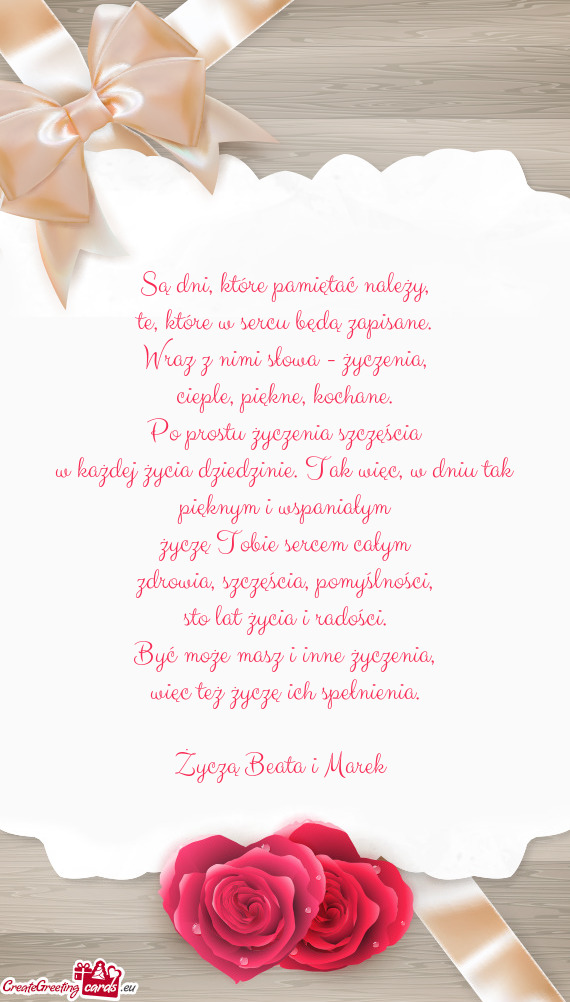 Są dni, które pamiętać należy,
te, które w sercu będą zapisane.
Wraz z nimi słowa - życzenia,
ciepłe, piękne, kochane.
Po prostu życzenia szczęścia
w każdej życia dziedzinie. Tak więc, w dniu tak
pięknym i wspaniałym
życzę Tobie sercem całym
zdrowia, szczęścia, pomyślności,
sto lat życia i radości.
Być może masz i inne życzenia,
więc też życzę ich spełnienia.
Życzą Beata i Marek
CreateGreeting cards .eu